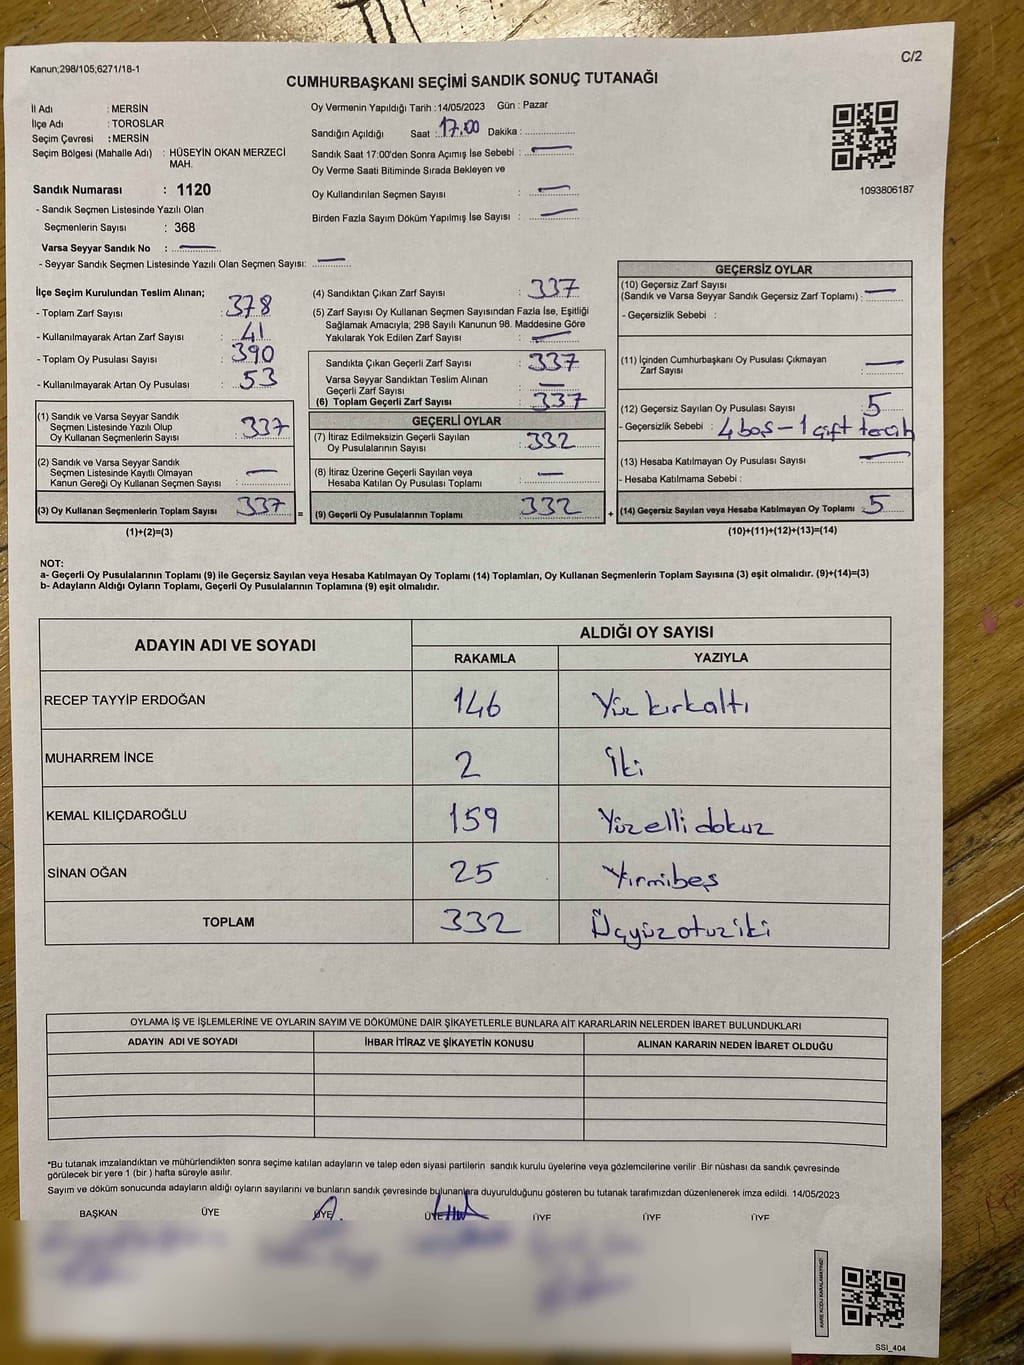 Kanun;298/105;6271/18-1
C/2
CUMHURBAŞKANI SEÇİMİ SANDIK SONUÇ TUTANAĞI
İl Adı : MERSİN
İlçe Adı : TOROSLAR
Seçim Çevresi : MERSİN
Seçim Bölgesi (Mahalle Adı) : HÜSEYİN OKAN MERZECİ
MAH.
Sandık Numarası : 1120
- Sandık Seçmen Listesinde Yazılı Olan
Seçmenlerin Sayısı : 368
Varsa Seyyar Sandık No : —
- Seyyar Sandık Seçmen Listesinde Yazılı Olan Seçmen Sayısı: —
Oy Vermenin Yapıldığı Tarih :14/05/2023 Gün : Pazar
Sandığın Açıldığı Saat : 17.00 Dakika :
Sandık Saat 17:00'den Sonra Açımış İse Sebebi : —
Oy Verme Saati Bitiminde Sırada Bekleyen ve
Oy Kullandırılan Seçmen Sayısı : —
Birden Fazla Sayım Döküm Yapılmış İse Sayısı : —
1093806187
İlçe Seçim Kurulundan Teslim Alınan;
- Toplam Zarf Sayısı : 378
- Kullanılmayarak Artan Zarf Sayısı : 41
- Toplam Oy Pusulası Sayısı : 390
- Kullanılmayarak Artan Oy Pusulası : 53
(1) Sandık ve Varsa Seyyar Sandık
Seçmen Listesinde Yazılı Olup
Oy Kullanan Seçmenlerin Sayısı : 337
(2) Sandık ve Varsa Seyyar Sandık
Seçmen Listesinde Kayıtlı Olmayan
Kanun Gereği Oy Kullanan Seçmen Sayısı : —
(3) Oy Kullanan Seçmenlerin Toplam Sayısı : 337
(1)+(2)=(3)
=
(4) Sandıktan Çıkan Zarf Sayısı : 337
(5) Zarf Sayısı Oy Kullanan Seçmen Sayısından Fazla İse, Eşitliği
Sağlamak Amacıyla; 298 Sayılı Kanunun 98. Maddesine Göre
Yakılarak Yok Edilen Zarf Sayısı : —
Sandıkta Çıkan Geçerli Zarf Sayısı : 337
Varsa Seyyar Sandıktan Teslim Alınan
Geçerli Zarf Sayısı : —
(6) Toplam Geçerli Zarf Sayısı : 337
GEÇERLİ OYLAR
(7) İtiraz Edilmeksizin Geçerli Sayılan
Oy Pusulalarının Sayısı : 332
(8) İtiraz Üzerine Geçerli Sayılan veya
Hesaba Katılan Oy Pusulası Toplamı : —
(9) Geçerli Oy Pusulalarının Toplamı : 332
+
GEÇERSİZ OYLAR
(10) Geçersiz Zarf Sayısı
(Sandık ve Varsa Seyyar Sandık Geçersiz Zarf Toplamı) : —
- Geçersizlik Sebebi :
(11) İçinden Cumhurbaşkanı Oy Pusulası Çıkmayan
Zarf Sayısı : —
(12) Geçersiz Sayılan Oy Pusulası Sayısı : 5
- Geçersizlik Sebebi : 4 boş – 1 çift tercih
(13) Hesaba Katılmayan Oy Pusulası Sayısı : —
- Hesaba Katılmama Sebebi :
(14) Geçersiz Sayılan veya Hesaba Katılmayan Oy Toplamı : 5
(10)+(11)+(12)+(13)=(14)
NOT:
a- Geçerli Oy Pusulalarının Toplamı (9) ile Geçersiz Sayılan veya Hesaba Katılmayan Oy Toplamı (14) Toplamları, Oy Kullanan Seçmenlerin Toplam Sayısına (3) eşit olmalıdır. (9)+(14)=(3)
b- Adayların Aldığı Oyların Toplamı, Geçerli Oy Pusulalarının Toplamına (9) eşit olmalıdır.
ADAYIN ADI VE SOYADI
ALDIĞI OY SAYISI
RAKAMLA YAZIYLA
RECEP TAYYİP ERDOĞAN 146 Yüz kırkaltı
MUHARREM İNCE 2 İki
KEMAL KILIÇDAROĞLU 159 Yüz elli dokuz
SİNAN OĞAN 25 Yirmibeş
TOPLAM 332 Üçyüzotuziki
OYLAMA İŞ VE İŞLEMLERİNE VE OYLARIN SAYIM VE DÖKÜMÜNE DAİR ŞİKAYETLERLE BUNLARA AİT KARARLARIN NELERDEN İBARET BULUNDUKLARI
ADAYIN ADI VE SOYADI İHBAR İTİRAZ VE ŞİKAYETİN KONUSU ALINAN KARARIN NEDEN İBARET OLDUĞU
*Bu tutanak imzalandıktan ve mühürlendikten sonra seçime katılan adayların ve talep eden siyasi partilerin sandık kurulu üyelerine veya gözlemcilerine verilir .Bir nüshası da sandık çevresinde
görülecek bir yere 1 (bir ) hafta süreyle asılır.
Sayım ve döküm sonucunda adayların aldığı oyların sayılarını ve bunların sandık çevresinde bulunanlara duyurulduğunu gösteren bu tutanak tarafımızdan düzenlenerek imza edildi. 14/05/2023
BAŞKAN ÜYE ÜYE ÜYE ÜYE ÜYE ÜYE
KARE KODU KARALAMAYINIZ!
SSI_404